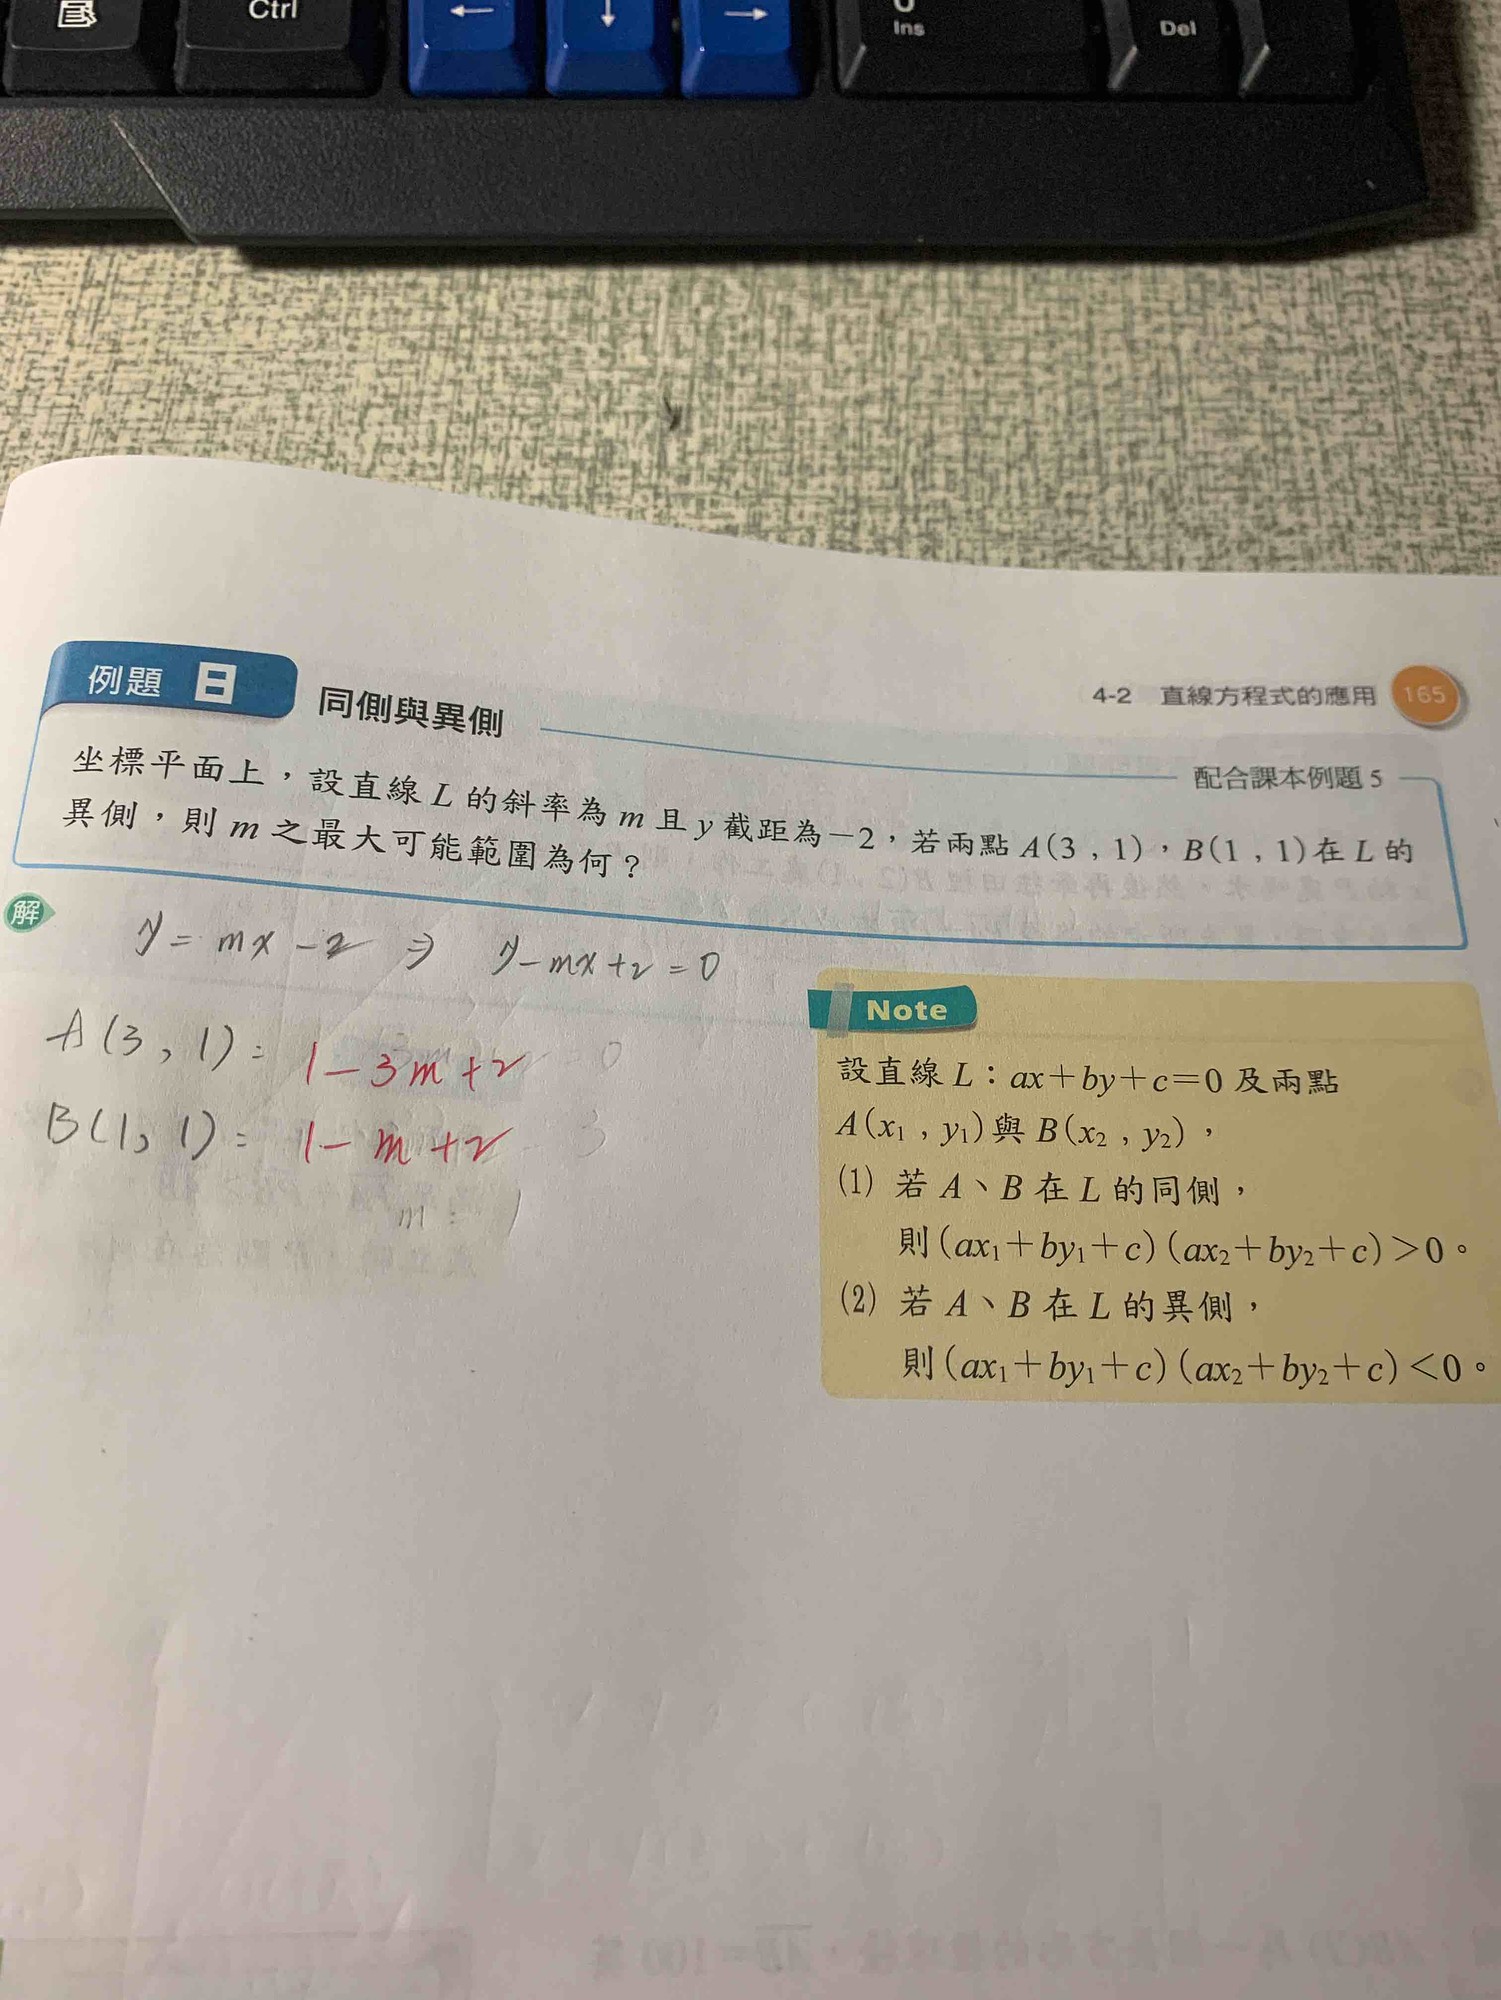 Ctrl
←
↓
→
Ins
Del
4-2 直線方程式的應用 165
例題 8 同側與異側
配合課本例題 5
坐標平面上，設直線 L 的斜率為 m 且 y 截距為－2，若兩點 A(3 , 1)，B(1 , 1)在 L 的
異側，則 m 之最大可能範圍為何？
解
y = mx - 2 ⇒ y - mx + 2 = 0
A(3, 1): 1 - 3m + 2
B(1, 1): 1 - m + 2
Note
設直線 L：ax＋by＋c＝0 及兩點
A(x₁ , y₁)與 B(x₂ , y₂)，
(1) 若 A、B 在 L 的同側，
則(ax₁＋by₁＋c)(ax₂＋by₂＋c)＞0。
(2) 若 A、B 在 L 的異側，
則(ax₁＋by₁＋c)(ax₂＋by₂＋c)＜0。